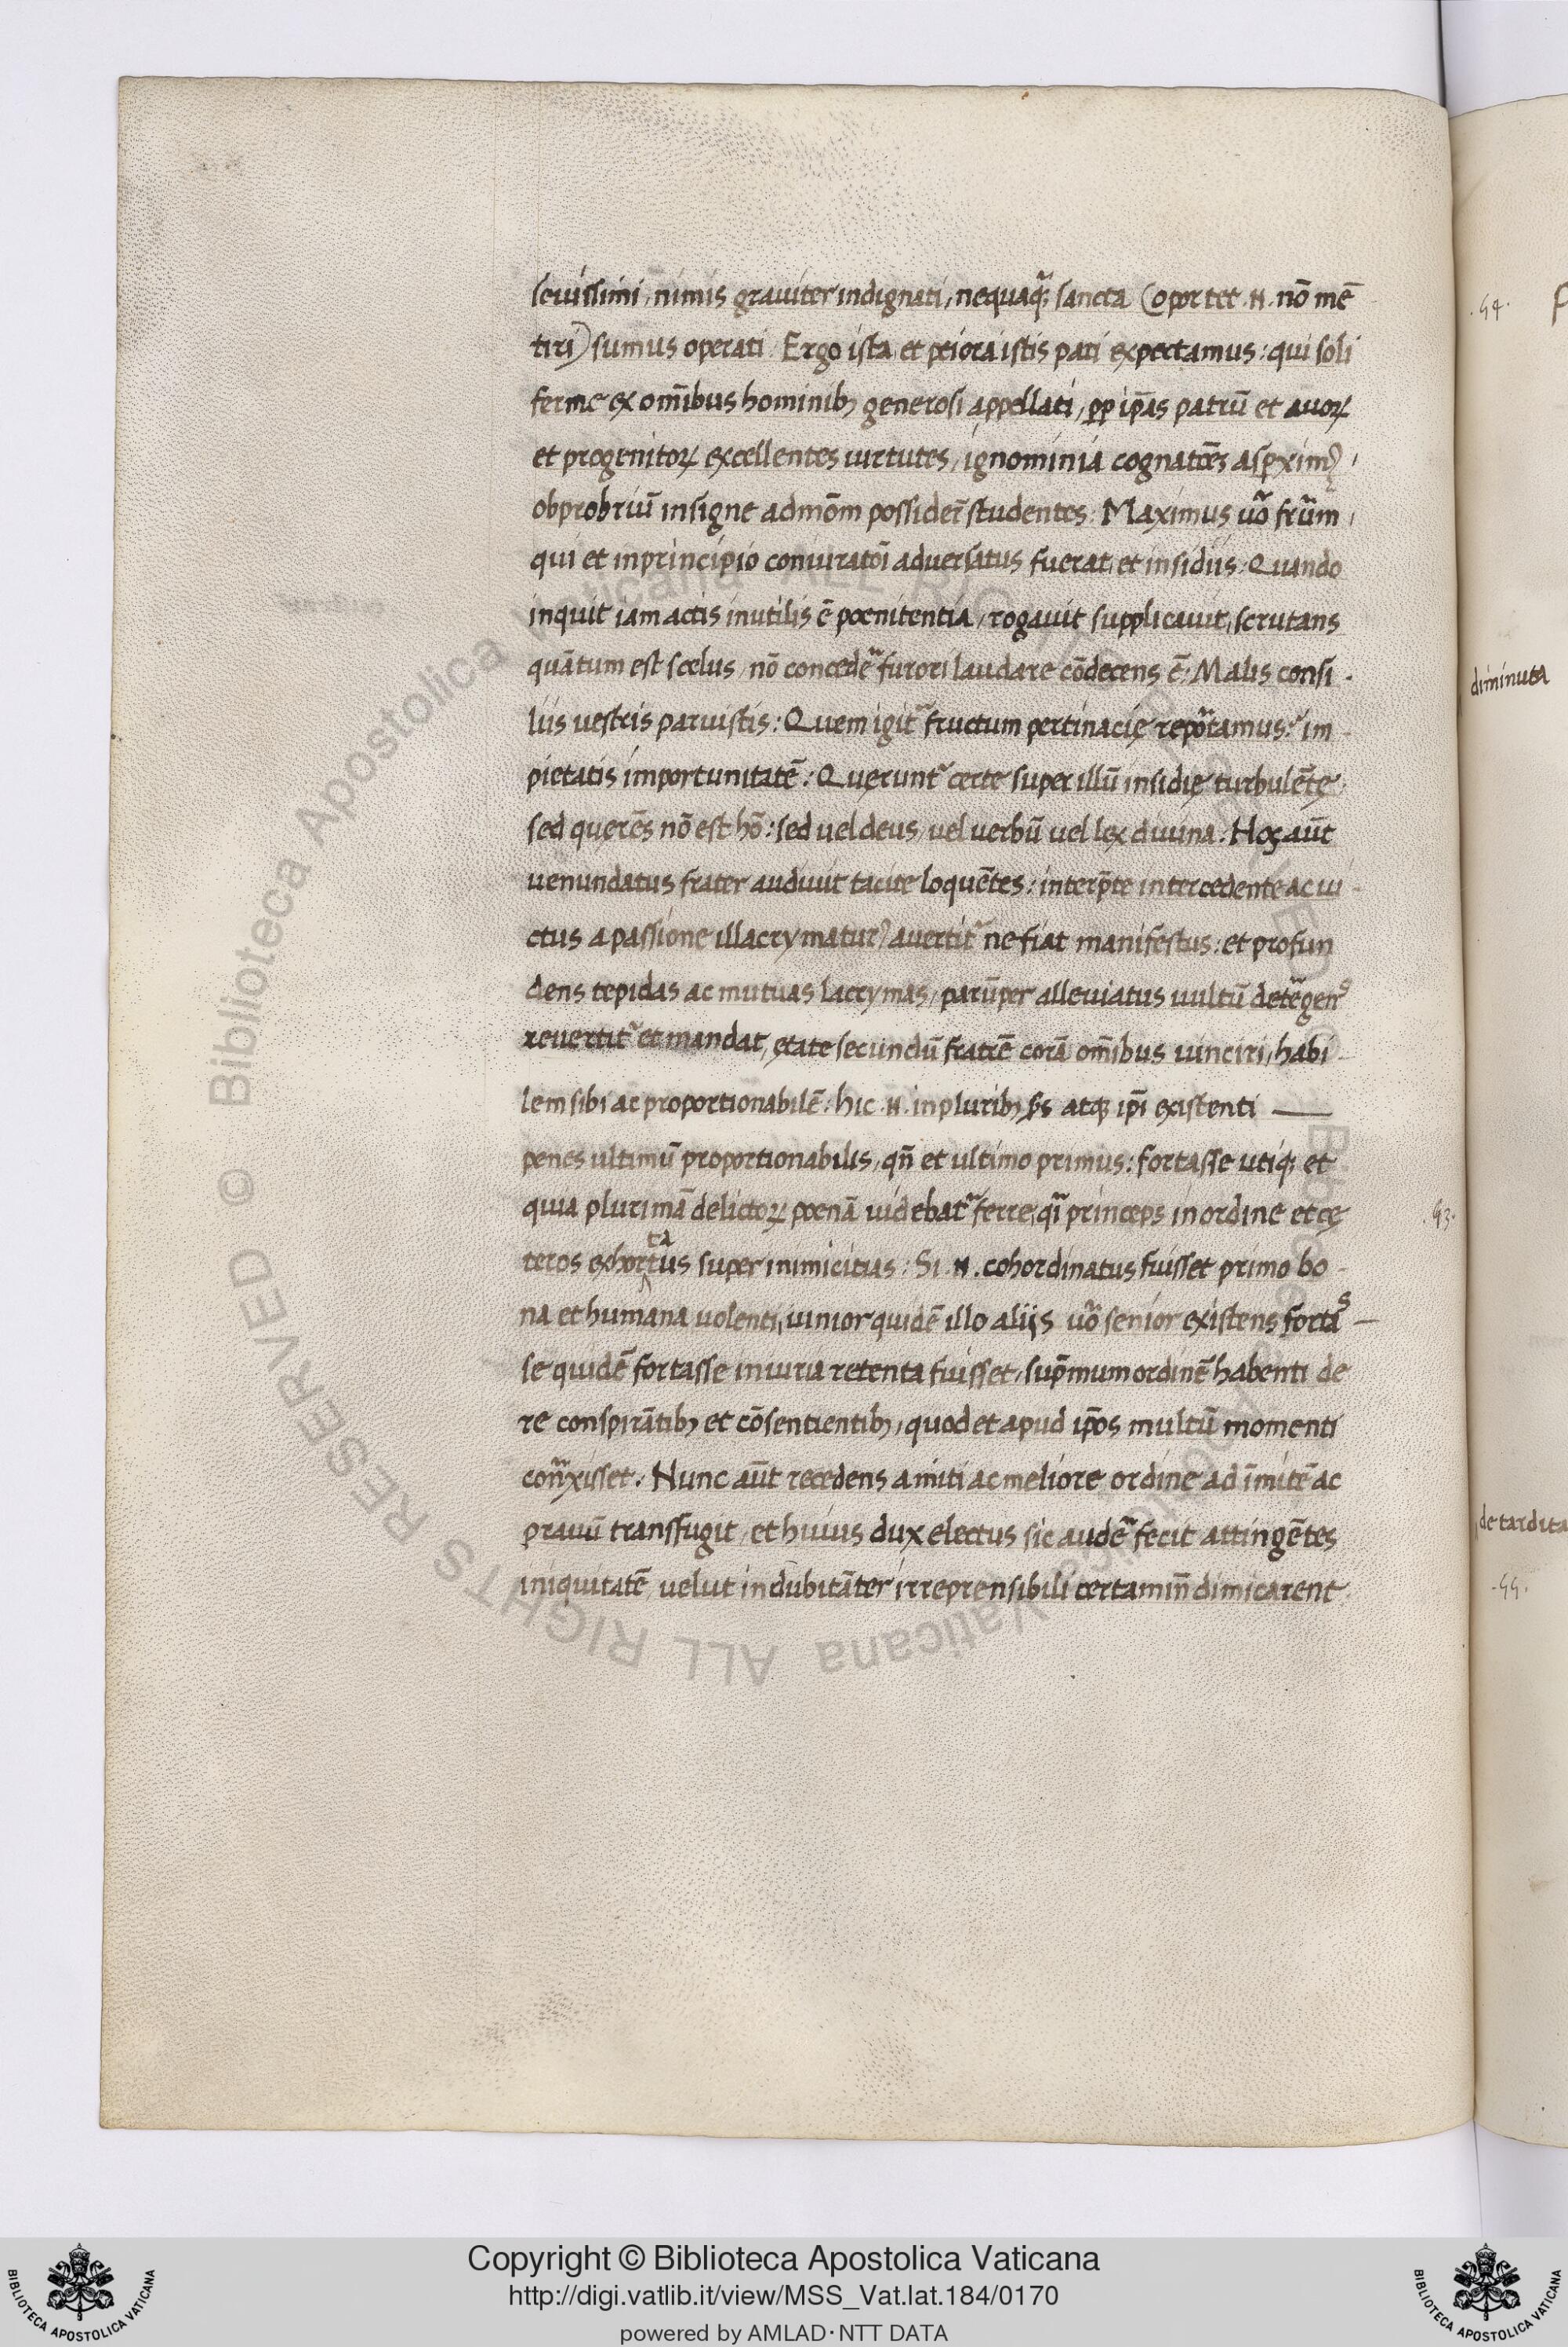 seuissimi, nimis grauiter indignati, nequaq̃ꝫ sancta (oportet .n. nō mē
tiri) sumus operati. Ergo ista et peiora istis pati expectamus: qui soli
ferme ex om̄ibus hominibꝫ generosi appellati, ꝓp ip̄as patrū et auoꝝ
et progenitoꝝ excellentes uirtutes, ignominiā
obprobriū insigne admōm possider̄ studentes: Maximus ũo fr̃um,
qui et in principio coniuratōi aduersatus fuerat et insidiis: Quando
inquit iam actis inutilis ē pœnitentia, rogauit supplicauit, scrutans
quātum est scelus, nō concedẽ furori laudare cōdecens ē: Malis consi-
liis uestris paruistis: Quem igit̃ fructum pertinacię repõtamus? im-
pietatis importunitatē: Queruntˀ certe super illū insidię turbulētę.
sed querēs nō est hō: sed uel deus, uel uerbū uel lex diuina: Hos aūt
uenundatus frater audiuit tacite loquētes: interp̄te intercedente ac ui-
ctus a passione illacrymatur, auertit̃ ne fiat manifestus: et profun
dens tepidas ac mutuas lacrymas, parūper alleuiatus uultū detẽgens
reuertit̃ et mandat, ętate secundū fratrē corā om̄ibus uinciri, habi-
lem sibi ac proportionabilē: hic .n. in pluribꝫ atqꝫ ip̄i existenti —
penes ultimū proportionabilis, qn̄ et ultimo primus: fortasse utiqꝫ et
quia plurimā delictoꝝ pœnā uidebat̃ ferre, qĩ princeps in ordine et cę
teros exhortatus super inimicitias: Si .n. cohordinatus fuisset primo bo-
na et humana uolenti, iunior quidē illo aliis ũo senior existens fortas—
se quidē fortasse iniuria retenta fuisset, sup̄mum ordinē habenti de
re conspirātibꝫ et cōsentientibꝫ, quod et apud ip̄os multū momenti
conñxisset. Nunc aūt recedens a miti ac meliore ordine ad īmitē ac
prauū transfugit, et huius dux electus sic audẽ fecit attingētes
iniquitatē, uelut indubitāter irreprensibili certamin̄ dimicarent
.54.
diminuta
.93.
de tardita
.55.
Biblioteca Apostolica Vaticana ALL RIGHTS RESERVED ©
Copyright © Biblioteca Apostolica Vaticana
http://digi.vatlib.it/view/MSS_Vat.lat.184/0170
powered by AMLAD·NTT DATA
BIBLIOTECA APOSTOLICA VATICANA
BIBLIOTECA APOSTOLICA VATICANA